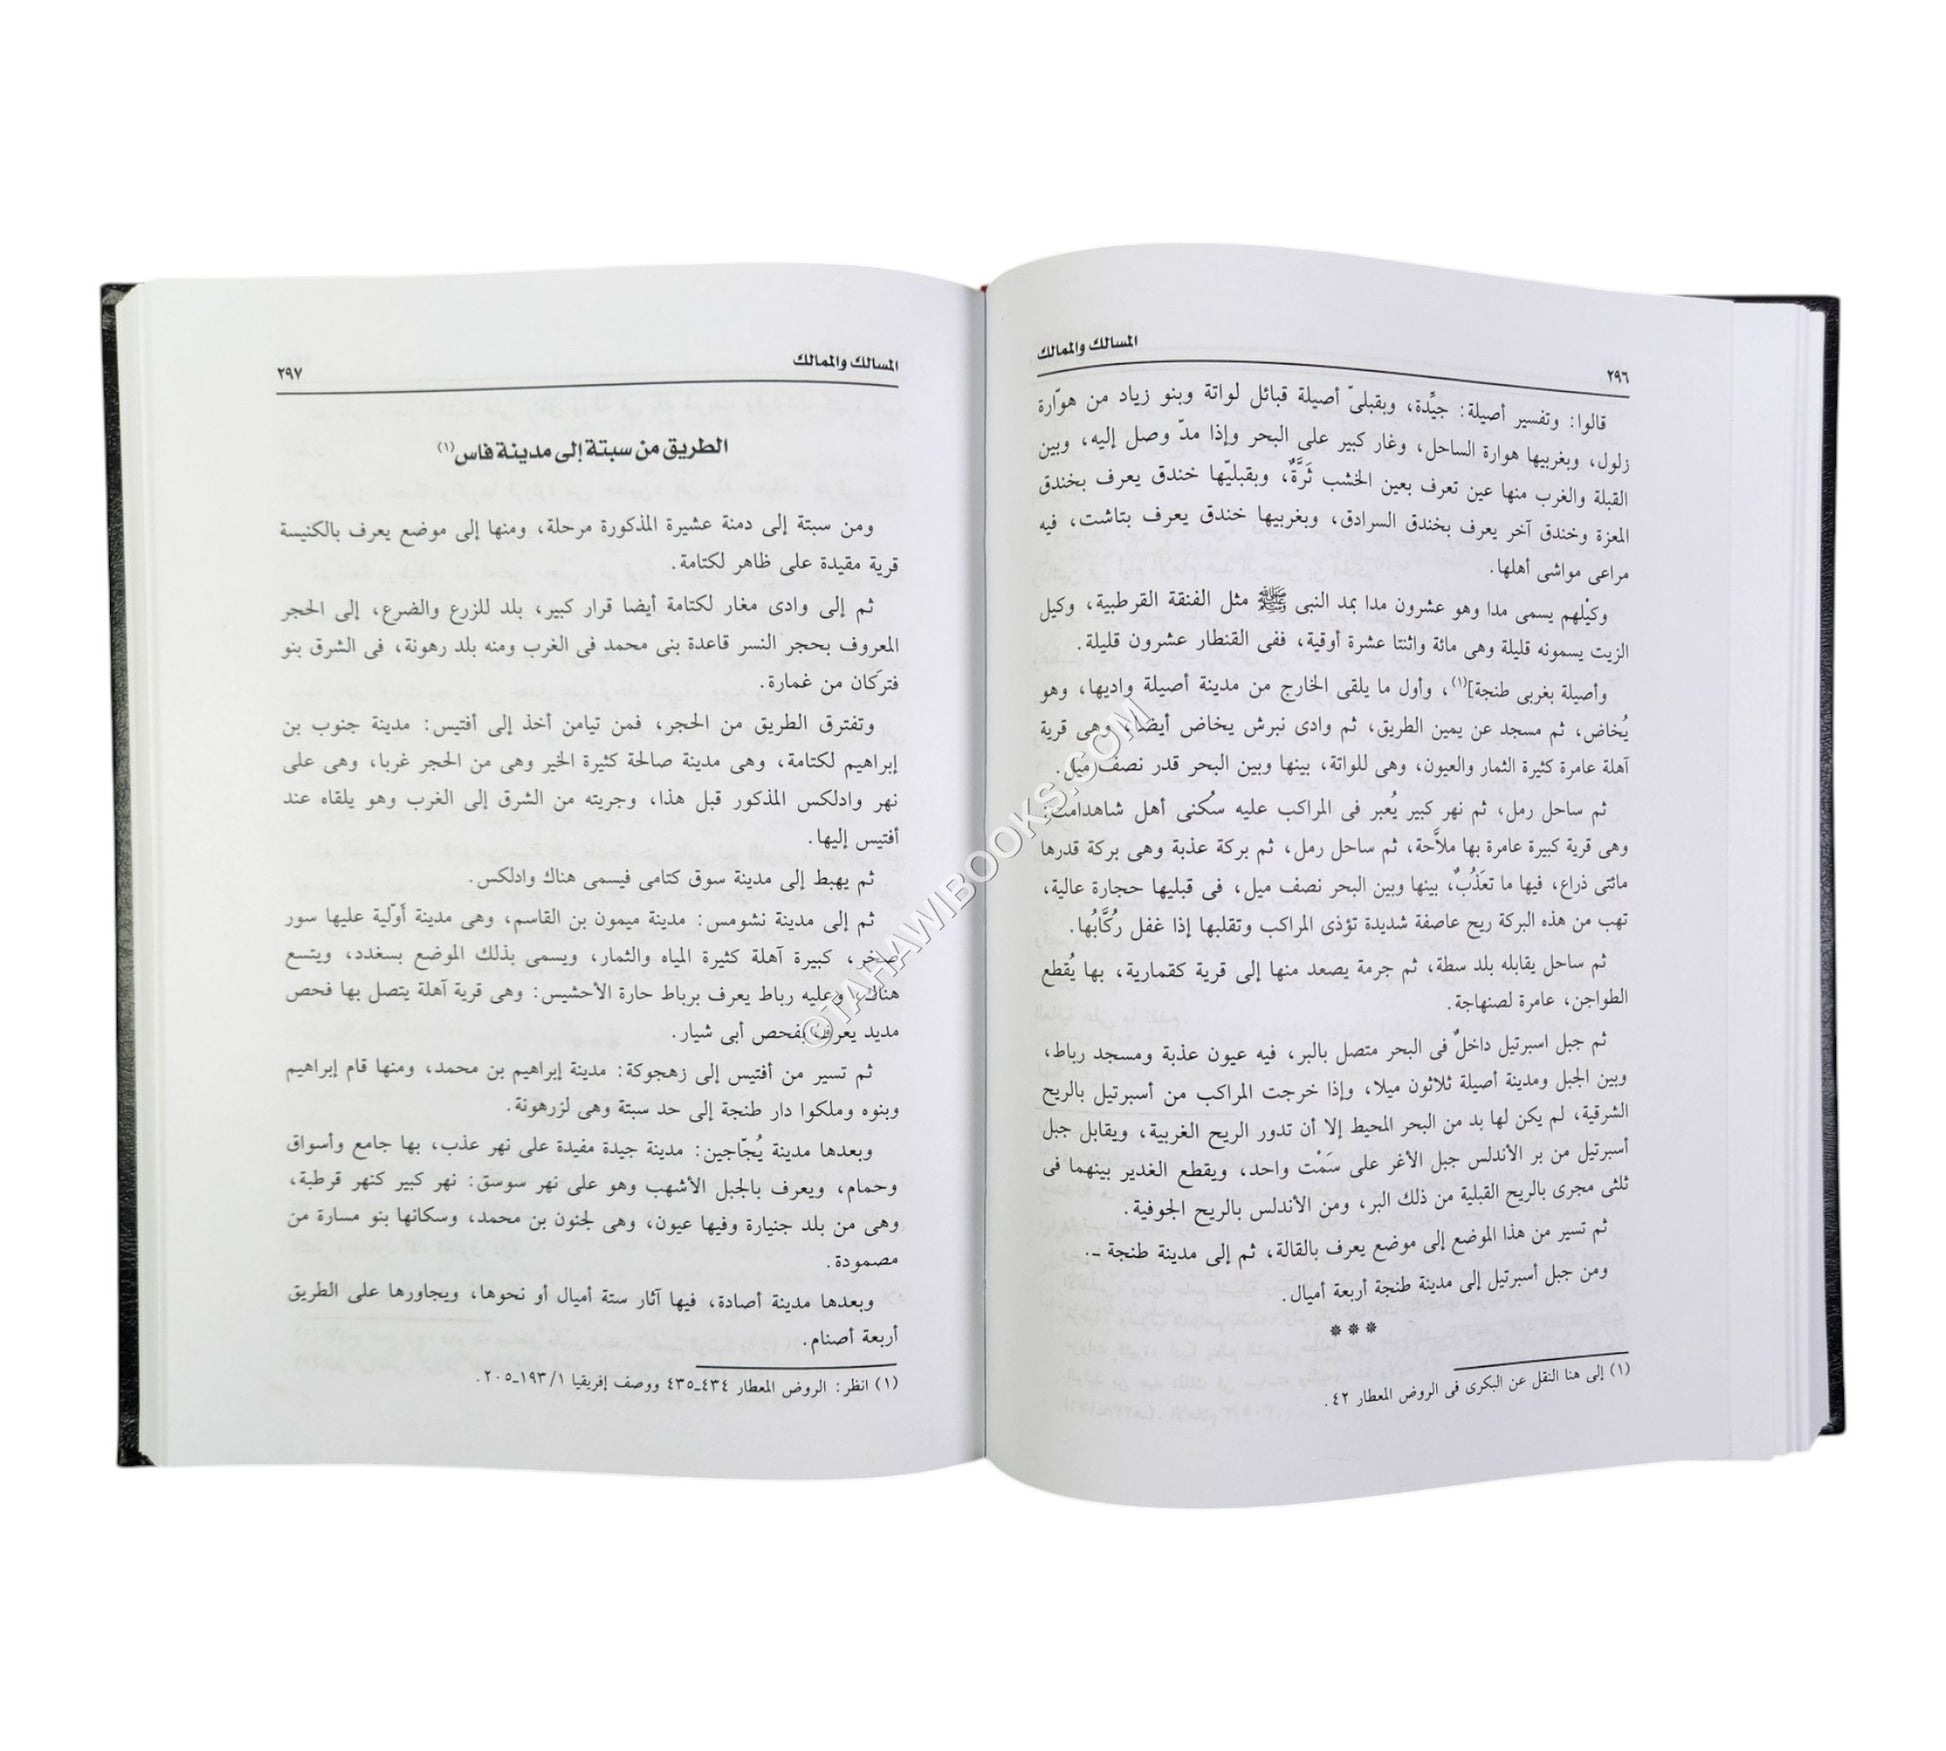 المسالك والممالك
٢٩٦
قالوا: وتفسير أصيلة: جيِّدة، وبقبلىّ أصيلة قبائل لواتة وبنو زياد من هوّارة
زلول، وبغربيها هوارة الساحل، وغار كبير على البحر وإذا مدّ وصل إليه، وبين
القبلة والغرب منها عين تعرف بعين الخشب ثَرَّةٌ، وبقبليّها خندق يعرف بخندق
المعزة وخندق آخر يعرف بخندق السرادق، وبغربيها خندق يعرف بتاشت، فيه
مراعى مواشى أهلها.
وكيْلهم يسمى مدا وهو عشرون مدا بمد النبى ﷺ مثل الفنقة القرطبية، وكيل
الزيت يسمونه قليلة وهى مائة واثنتا عشرة أوقية، ففى القنطار عشرون قليلة.
وأصيلة بغربى طنجة](١)، وأول ما يلقى الخارج من مدينة أصيلة واديها، وهو
يُخاض، ثم مسجد عن يمين الطريق، ثم وادى نبرش يخاض أيضا، وهى قرية
آهلة عامرة كثيرة الثمار والعيون، وهى للواتة، بينها وبين البحر قدر نصف ميل.
ثم ساحل رمل، ثم نهر كبير يُعبر فى المراكب عليه سكنى أهل شاهدامت:
وهى قرية كبيرة عامرة بها ملاَّحة، ثم ساحل رمل، ثم بركة عذبة وهى بركة قدرها
مائتى ذراع، فيها ما تعَذُبٌ، بينها وبين البحر نصف ميل، فى قبليها حجارة عالية،
تهب من هذه البركة ريح عاصفة شديدة تؤذى المراكب وتقلبها إذا غفل رُكَّابُها.
ثم ساحل يقابله بلد سطة، ثم جرمة يصعد منها إلى قرية كقمارية، بها يُقطع
الطواجن، عامرة لصنهاجة.
ثم جبل اسبرتيل داخلٌ فى البحر متصل بالبر، فيه عيون عذبة ومسجد رباط،
وبين الجبل ومدينة أصيلة ثلاثون ميلا، وإذا خرجت المراكب من أسبرتيل بالريح
الشرقية، لم يكن لها بد من البحر المحيط إلا أن تدور الريح الغربية، ويقابل جبل
أسبرتيل من بر الأندلس جبل الأغر على سَمْت واحد، ويقطع الغدير بينهما فى
ثلثى مجرى بالريح القبلية من ذلك البر، ومن الأندلس بالريح الجوفية.
ثم تسير من هذا الموضع إلى موضع يعرف بالقالة، ثم إلى مدينة طنجة ـ.
ومن جبل أسبرتيل إلى مدينة طنجة أربعة أميال.
***
(١) إلى هنا النقل عن البكرى فى الروض المعطار ٤٢.
المسالك والممالك
٢٩٧
الطريق من سبتة إلى مدينة فاس(١)
ومن سبتة إلى دمنة عشيرة المذكورة مرحلة، ومنها إلى موضع يعرف بالكنيسة
قرية مقيدة على ظاهر لكتامة.
ثم إلى وادى مغار لكتامة أيضا قرار كبير، بلد للزرع والضرع، إلى الحجر
المعروف بحجر النسر قاعدة بنى محمد فى الغرب ومنه بلد رهونة، فى الشرق بنو
فتركان من غمارة.
وتفترق الطريق من الحجر، فمن تيامن أخذ إلى أفتيس: مدينة جنوب بن
إبراهيم لكتامة، وهى مدينة صالحة كثيرة الخير وهى من الحجر غربا، وهى على
نهر وادلكس المذكور قبل هذا، وجريته من الشرق إلى الغرب وهو يلقاه عند
أفتيس إليها.
ثم يهبط إلى مدينة سوق كتامى فيسمى هناك وادلكس.
ثم إلى مدينة نشومس: مدينة ميمون بن القاسم، وهى مدينة أَوّلية عليها سور
صخر، كبيرة آهلة كثيرة المياه والثمار، ويسمى بذلك الموضع بسغدد، ويتسع
هناك، وعليه رباط يعرف برباط حارة الأحشيس: وهى قرية آهلة يتصل بها فحص
مديد يعرف بفحص أبى شيار.
ثم تسير من أفتيس إلى زهجوكة: مدينة إبراهيم بن محمد، ومنها قام إبراهيم
وبنوه وملكوا دار طنجة إلى حد سبتة وهى لزرهونة.
وبعدها مدينة يُجّاجين: مدينة جيدة مفيدة على نهر عذب، بها جامع وأسواق
وحمام، ويعرف بالجبل الأشهب وهو على نهر سوسق: نهر كبير كنهر قرطبة،
وهى من بلد جنيارة وفيها عيون، وهى لجنون بن محمد، وسكانها بنو مسارة من
مصمودة.
وبعدها مدينة أصادة، فيها آثار ستة أميال أو نحوها، ويجاورها على الطريق
أربعة أصنام.
(١) انظر: الروض المعطار ٤٣٤ـ٤٣٥ ووصف إفريقيا ١/ ١٩٣ـ٢٠٥.
©TAHAWIBOOKS.COM